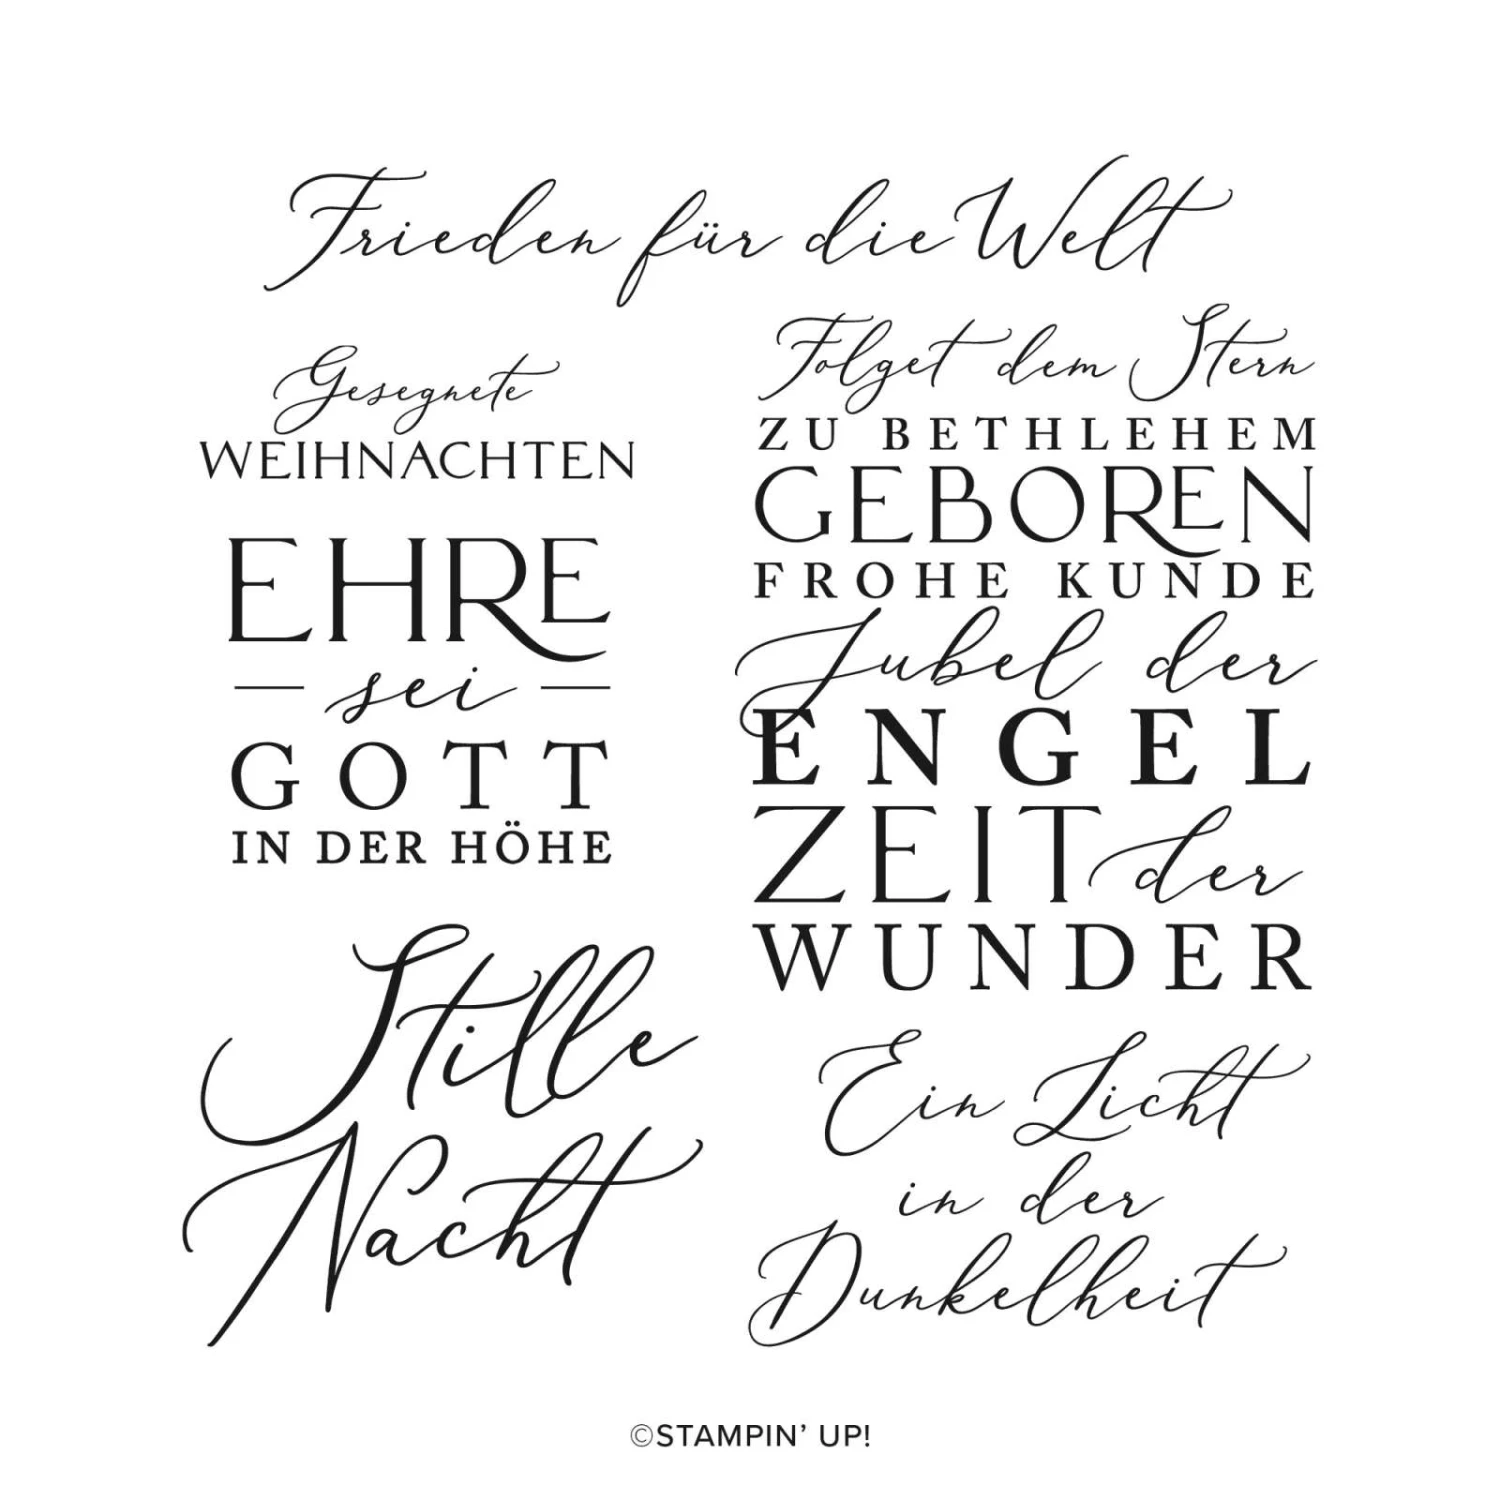 Frieden für die Welt
Gesegnete
WEIHNACHTEN
EHRE
sei
GOTT
IN DER HÖHE
Stille
Nacht
Folget dem Stern
ZU BETHLEHEM
GEBOREN
FROHE KUNDE
Jubel der
ENGEL
ZEIT der
WUNDER
Ein Licht
in der
Dunkelheit
©STAMPIN’ UP!